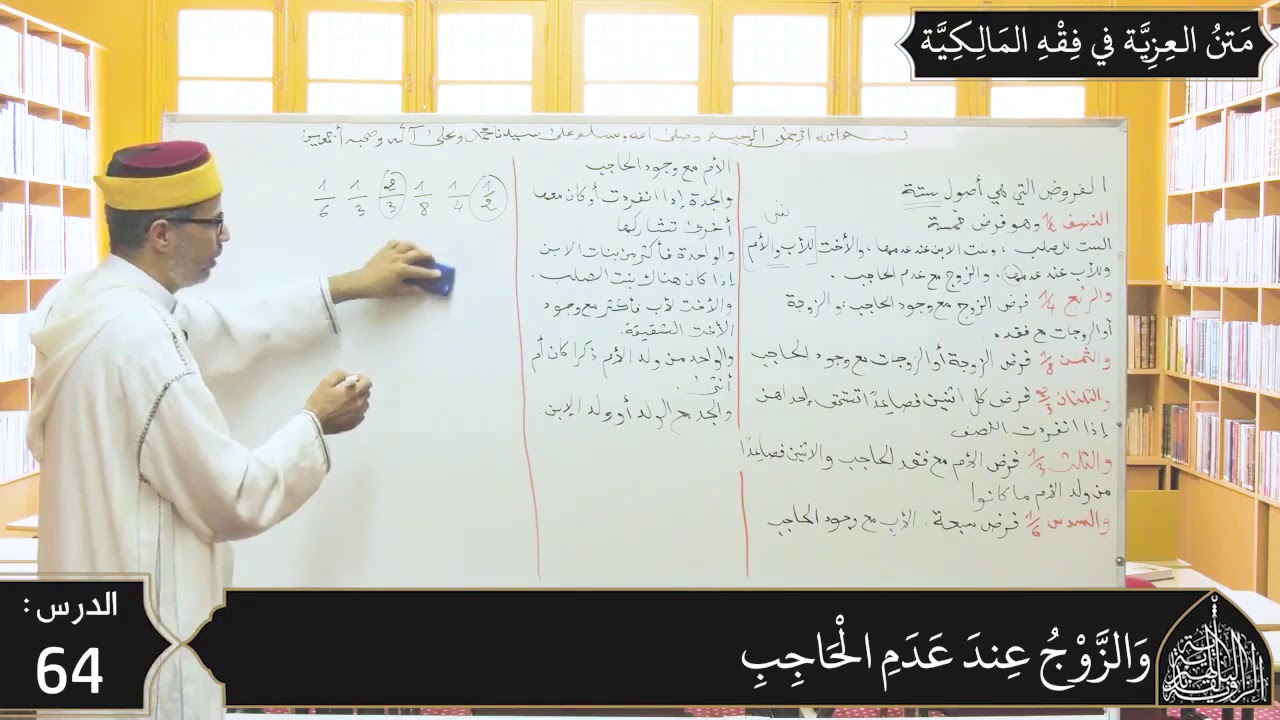 مَتنُ العِزِيَّة في فِقْهِ المَالِكِيَّة
بسم الله الرحمن الرحيم وصلى الله وسلم على سيدنا محمد وعلى آله وصحبه أجمعين
الفروض التي هي أصول ستة
النصف 1/2 وهو فرض خمسة
البنت للصلب ، وبنت الابن عند عدمها، والأخت [للأب والأم]
وللأب عند عدمها، والزوج مع عدم الحاجب .
والربع 1/4 فرض الزوج مع وجود الحاجب، والزوجة
أو الزوجات مع فقده .
والثمن 1/8 فرض الزوجة أو الزوجات مع وجود الحاجب
والثلثان 2/3 فرض كل اثنين فصاعدًا تستحق إحداهن
إذا انفردت النصف
والثلث 1/3 فرض الأم مع فقد الحاجب والاثنين فصاعدًا
من ولد الأم ما كانوا
والسدس 1/6 فرض سبعة . الأب مع وجود الحاجب
الأم مع وجود الحاجب
والجدة إذا انفردت أو كان معها
أخرى تشاركها
والواحدة فأكثر من بنات الابن
إذا كان هناك بنت الصلب .
والأخت لأب فأكثر مع وجود
الأخت الشقيقة.
والواحد من ولد الأم ذكرا كان أم
أنثى .
والجد مع الولد أو ولد الابن .
1/2 1/4 1/8 2/3 1/3 1/6
الدرس :
64
وَالزَّوْجُ عِندَ عَدَمِ الْحَاجِبِ